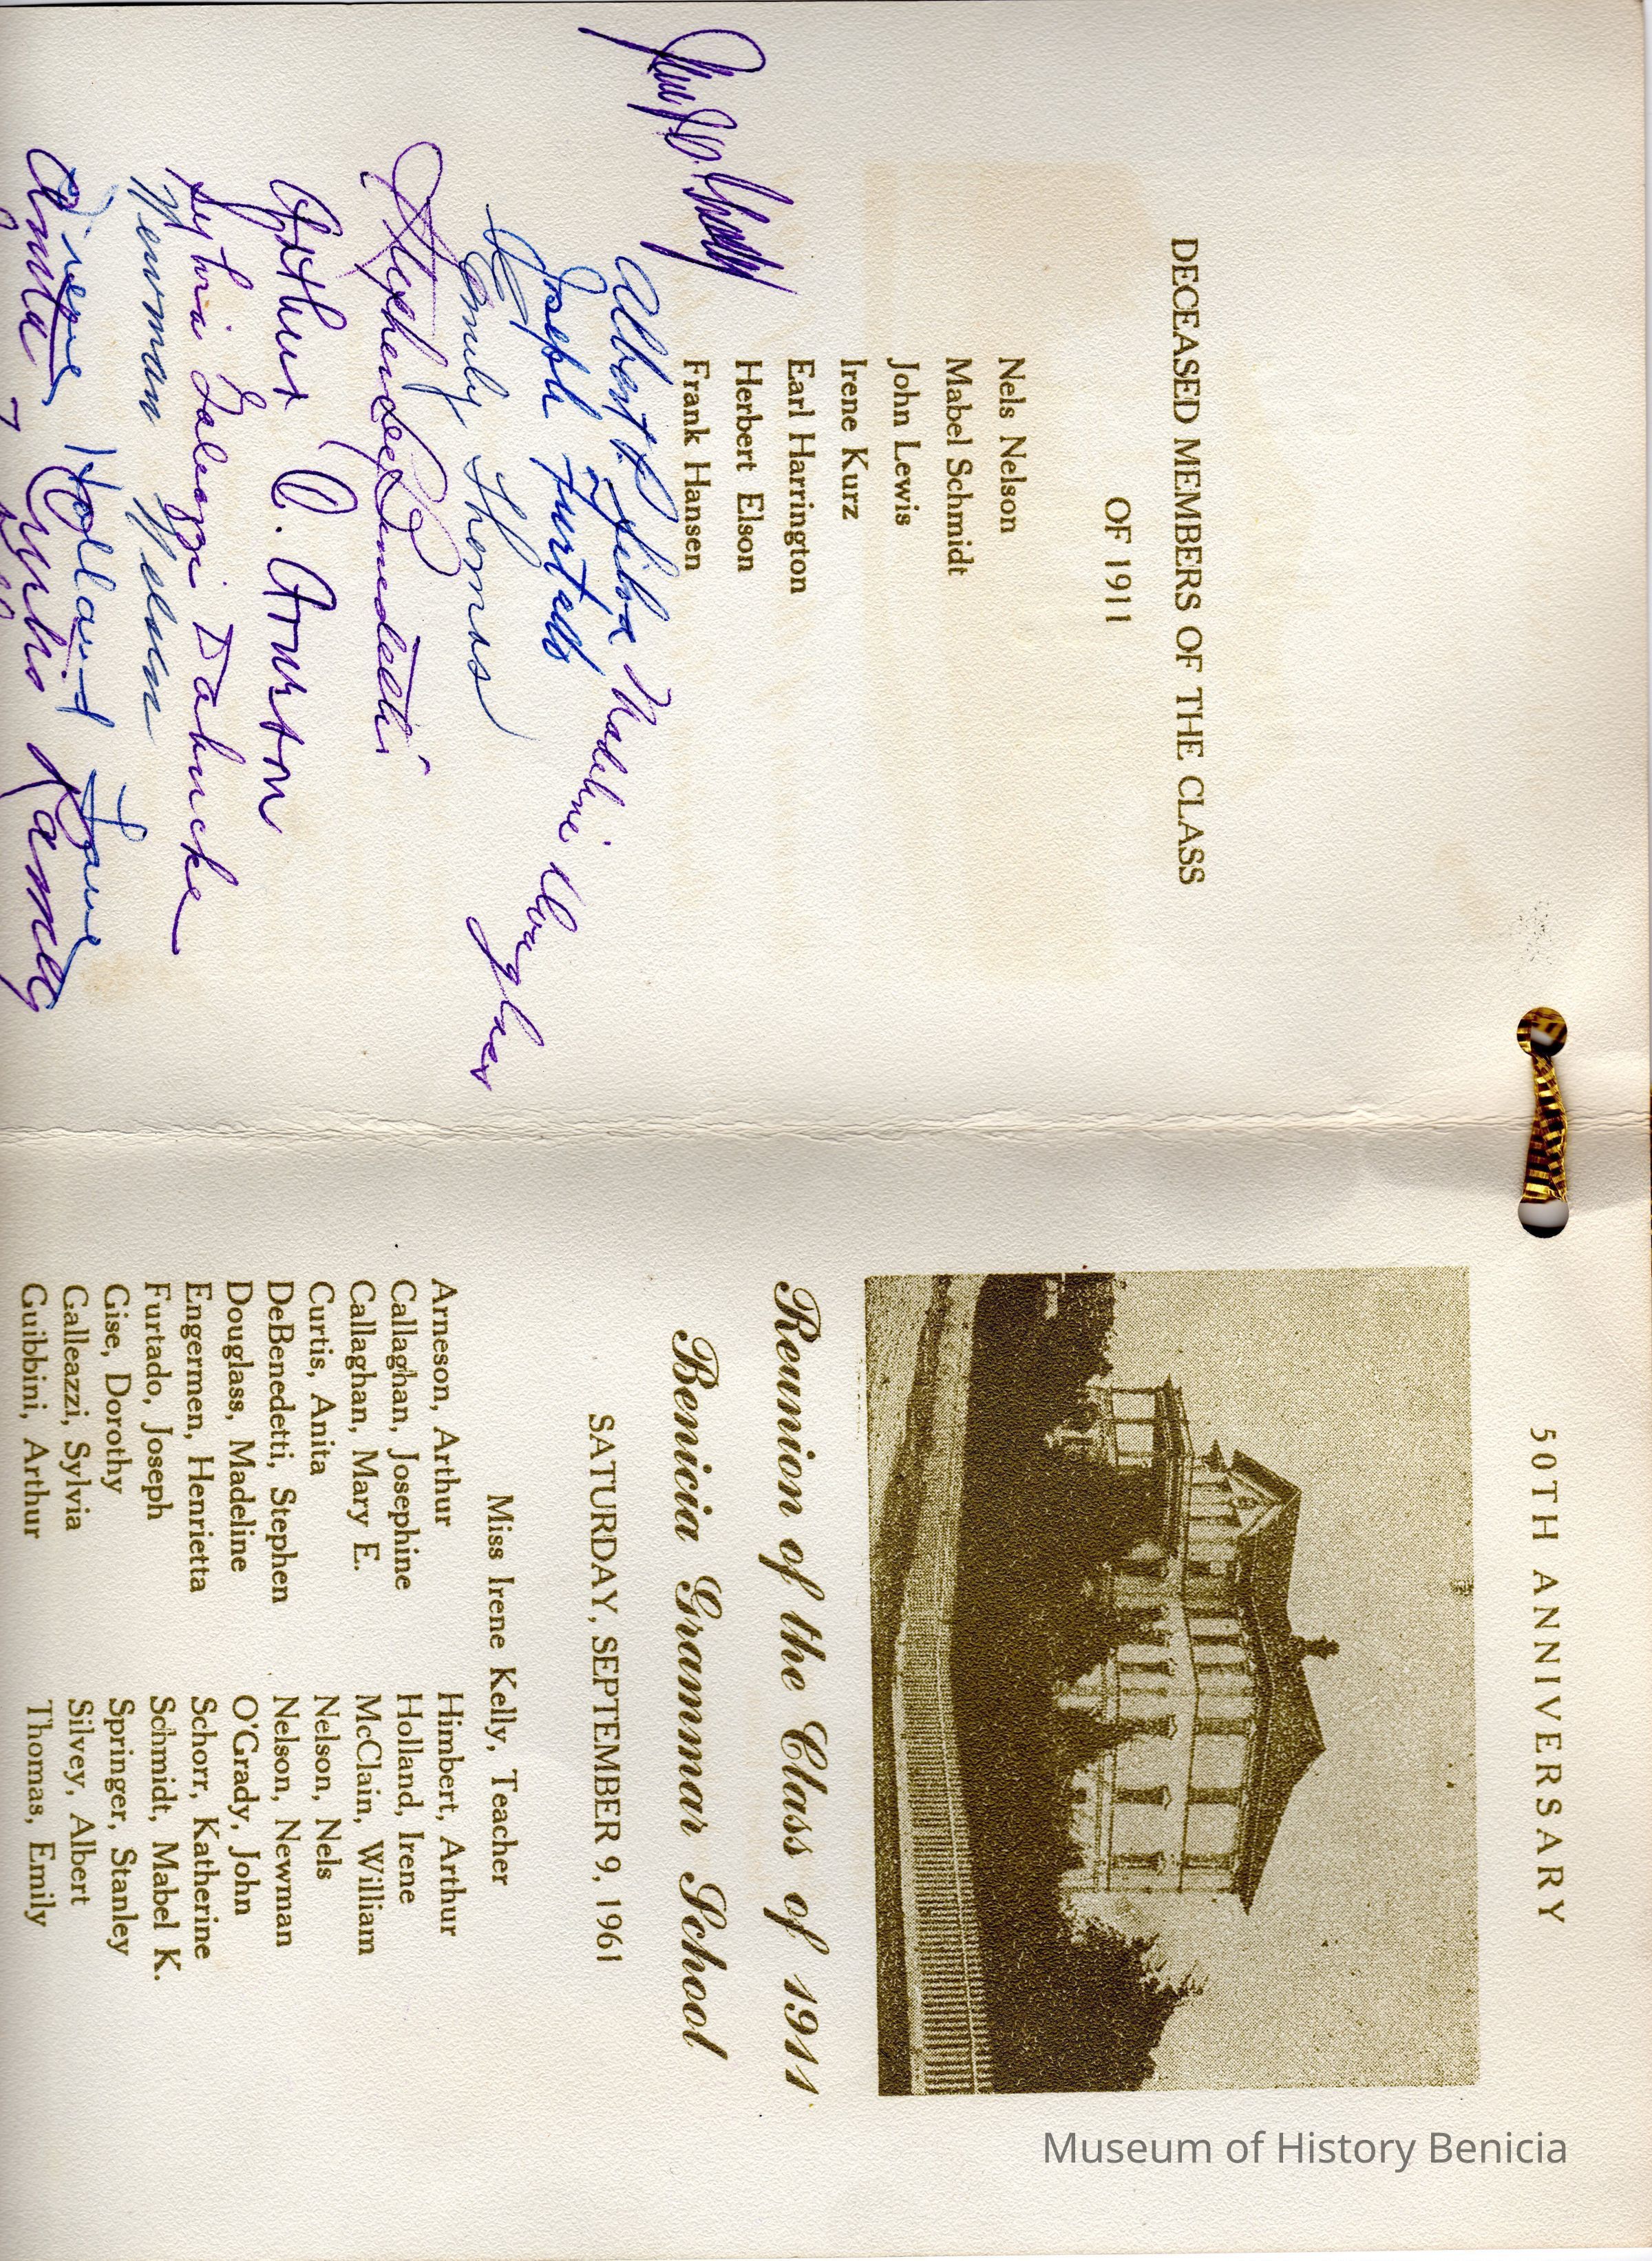 DECEASED MEMBERS OF THE CLASS
OF 1911
Nels Nelson
Mabel Schmidt
John Lewis
Irene Kurz
Earl Harrington
Herbert Elson
Frank Hansen
Albert
Madeline
Joseph Furtado
Emily Thomas
Stephen
Arthur
Sylvia Galeazzi Dahncke
Newman Nelson
Irene Holland
Anita Curtis Ramey
50TH ANNIVERSARY
Reunion of the Class of 1911
Benicia Grammar School
SATURDAY, SEPTEMBER 9, 1961
Miss Irene Kelly, Teacher
Arneson, Arthur
Callaghan, Josephine
Callaghan, Mary E.
Curtis, Anita
DeBenedetti, Stephen
Douglass, Madeline
Engermen, Henrietta
Furtado, Joseph
Gise, Dorothy
Galleazzi, Sylvia
Guibbini, Arthur
Himbert, Arthur
Holland, Irene
McClain, William
Nelson, Nels
Nelson, Newman
O'Grady, John
Schorr, Katherine
Schmidt, Mabel K.
Springer, Stanley
Silvey, Albert
Thomas, Emily
Museum of History Benicia